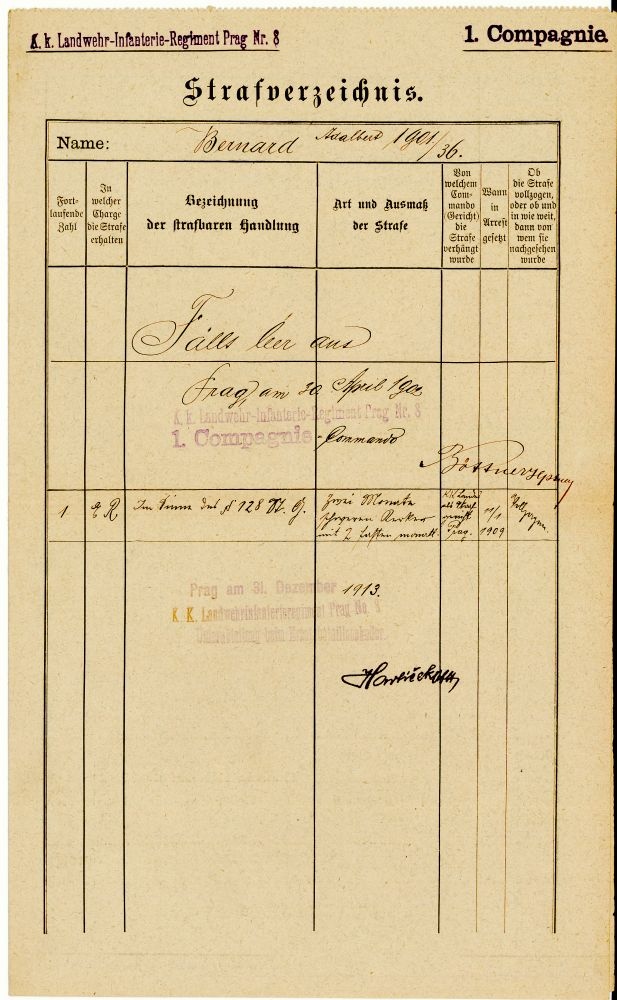 K. k. Landwehr-Infanterie-Regiment Prag Nr. 8
1. Compagnie
Strafverzeichnis.
Name: Bernard Adalbert 1901/36.
Fort-
laufende
Zahl
In
welcher
Charge
die Strafe
erhalten
Bezeichnung
der strafbaren Handlung
Art und Ausmaß
der Strafe
Von
welchem
Com-
mando
(Gericht)
die
Strafe
verhängt
wurde
Wann
in
Arrest
gesetzt
Ob
die Strafe
vollzogen,
oder ob und
in wie weit,
dann von
wem sie
nachgesehen
wurde
Fälls leer aus
Prag, am 30. April 190
K. k. Landwehr-Infanterie-Regiment Prag Nr. 8
1. Compagnie-Commando
1
Im Sinne des § 128 St. G.
Zwei Monate
schweren Kerker
mit 2 Fasten monatl.
K.K. Landes
als Straf
gericht
Prag.
11/1
1909
Vollzogen.
Prag am 31. Dezember 1913.
K. K. Landwehrinfanterieregiment Prag No. 8